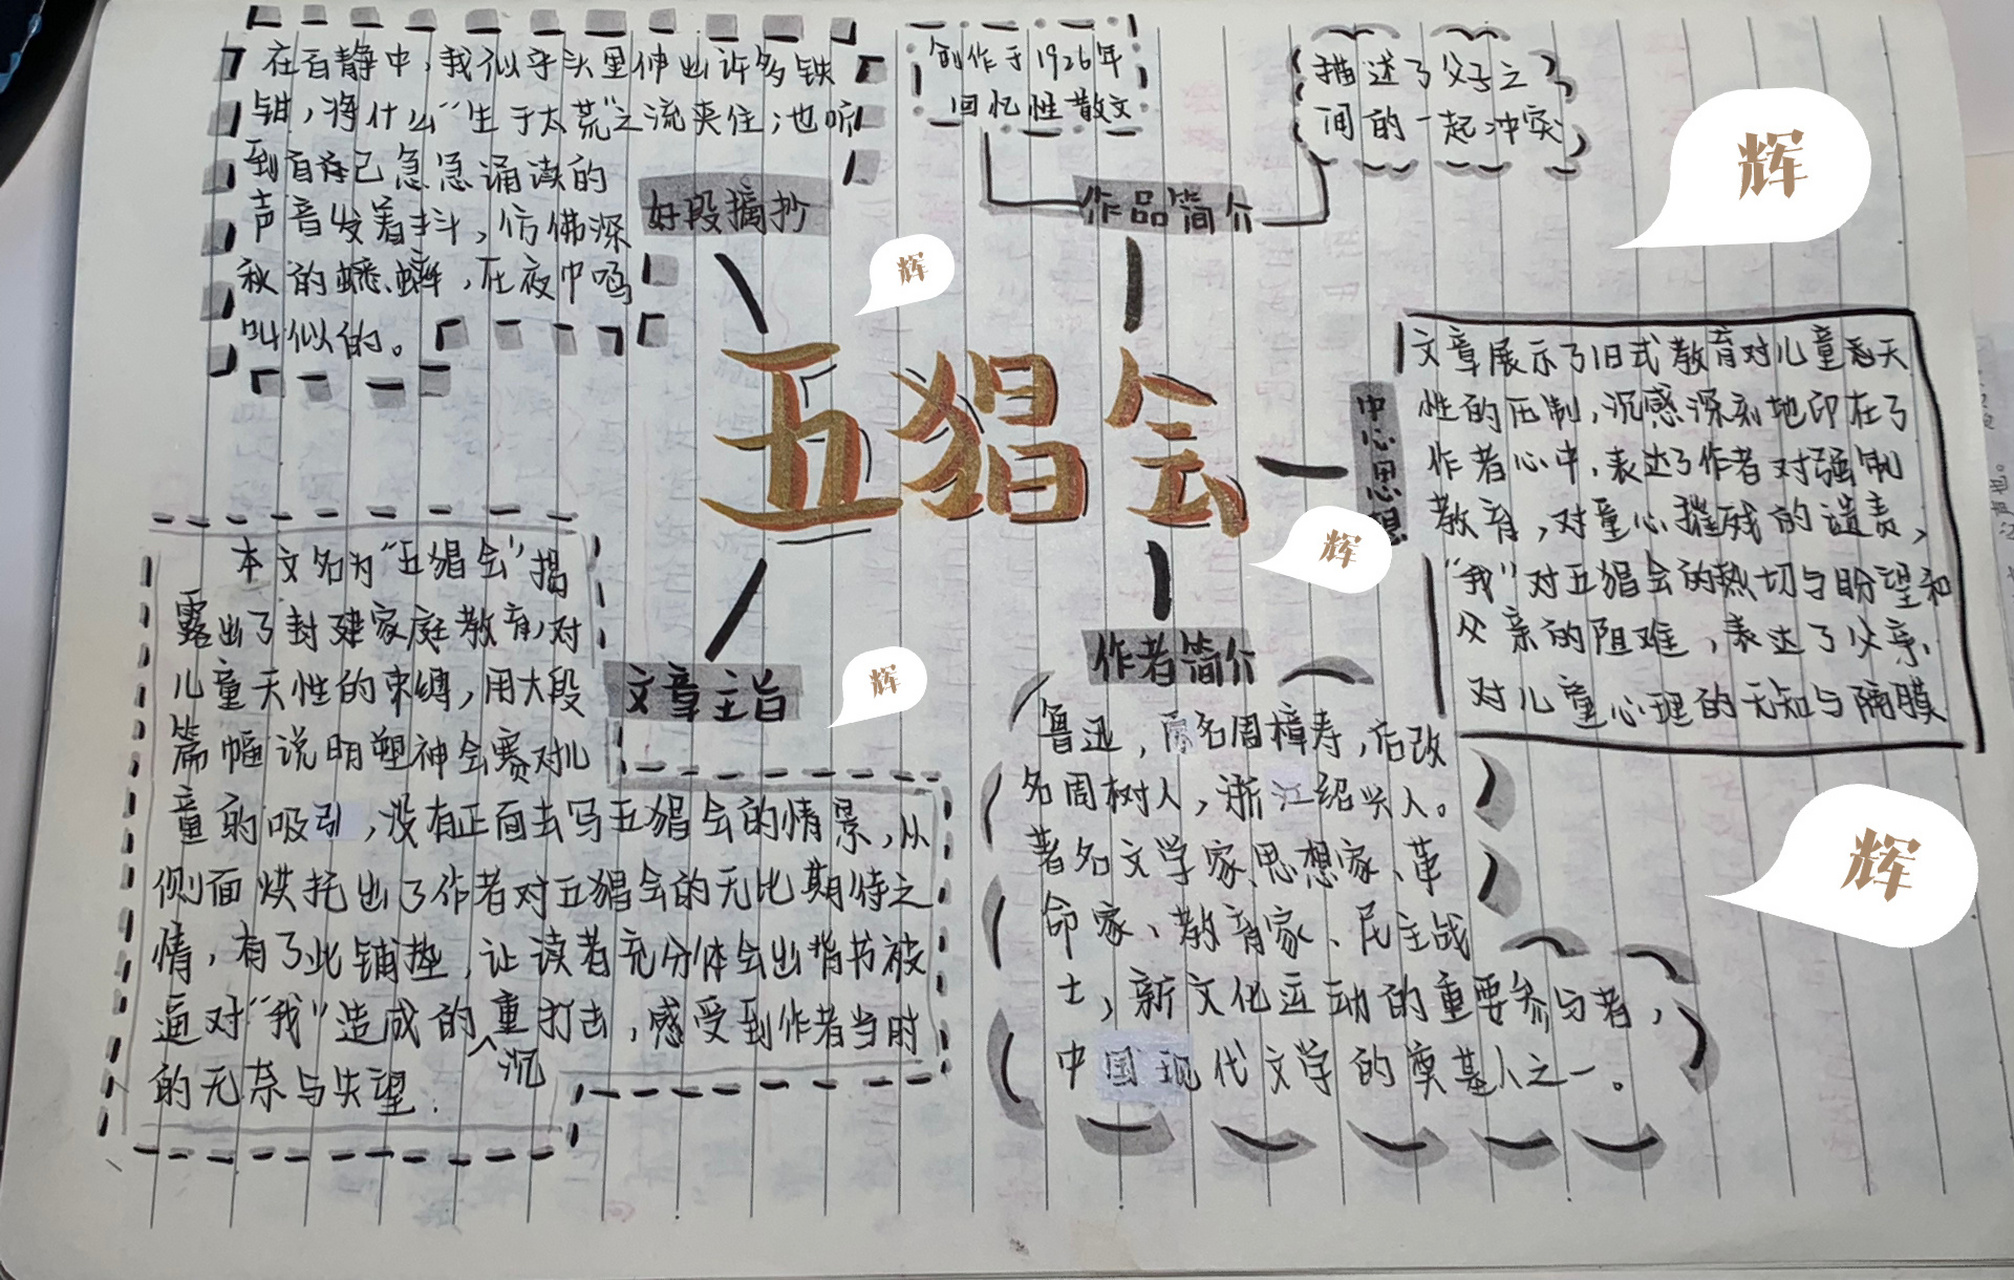 五猖会
好段摘抄
在百静中,我似乎头里伸出许多铁
钳,将什么"生于太荒"之流夹住;也听
到自己急急诵读的
声音发着抖,仿佛深
秋的蟋蟀,在夜中鸣
叫似的。
作品简介
创作于1926年
回忆性散文
描述了父子之
间的一起冲突
中心思想
文章展示了旧式教育对儿童天
性的压制,沉感深刻地印在了
作者心中,表达了作者对强制
教育,对童心摧残的谴责,
"我"对五猖会的热切与盼望和
父亲的阻难,表达了父亲
对儿童心理的无知与隔膜
作者简介
鲁迅,原名周樟寿,后改
名周树人,浙江绍兴人。
著名文学家、思想家、革
命家、教育家、民主战
士,新文化运动的重要参与者,
中国现代文学的奠基人之一。
文章主旨
本文名为"五猖会"揭
露出了封建家庭教育对
儿童天性的束缚,用大段
篇幅说明塑神会赛对儿
童的吸引,没有正面去写五猖会的情景,从
侧面烘托出了作者对五猖会的无比期待之
情,有了此铺垫,让读者充分体会出背书被
逼对"我"造成的沉重打击,感受到作者当时
的无奈与失望.
辉
辉
辉
辉
辉